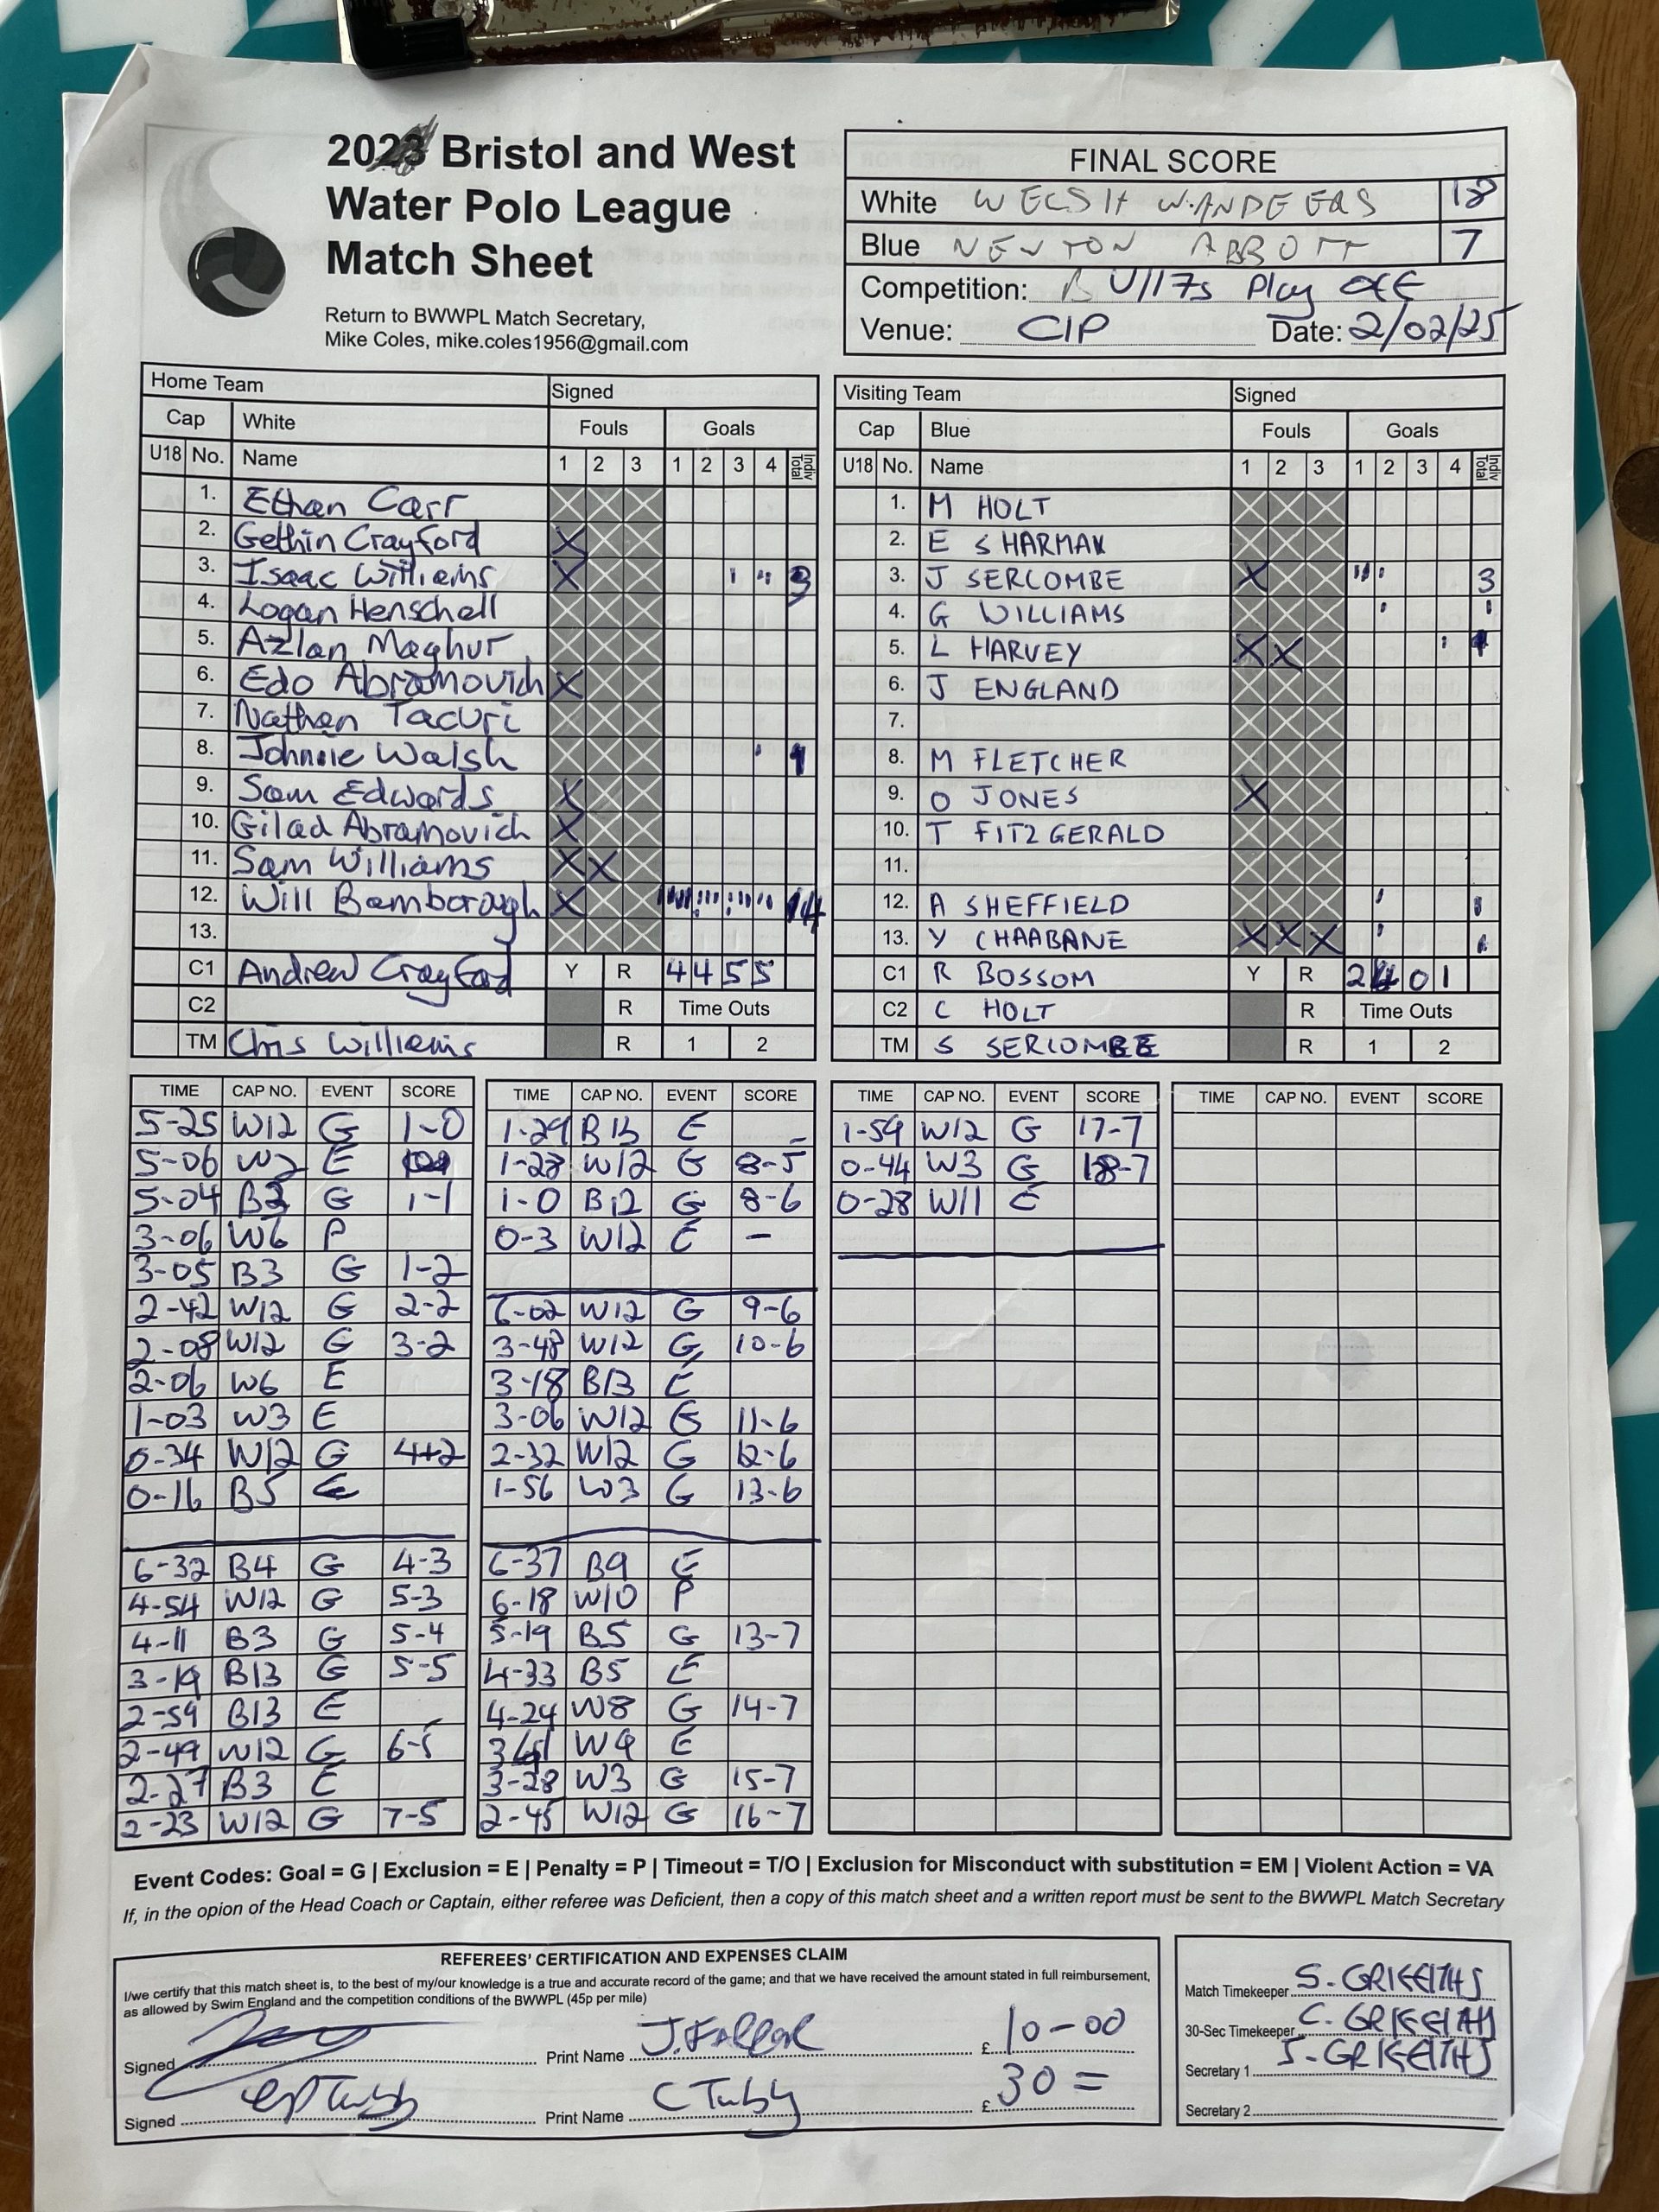 2023 Bristol and West
Water Polo League
Match Sheet
Return to BWWPL Match Secretary,
Mike Coles, mike.coles1956@gmail.com
FINAL SCORE
White WELSH WANDEERS 18
Blue NEWTON ABBOTT 7
Competition: B U/17s Play off
Venue: CIP Date: 2/02/25
Home Team Signed
Cap White Fouls Goals
U18 No. Name 1 2 3 1 2 3 4 Indiv Total
1. Ethan Carr
2. Gethin Crayford X
3. Isaac Williams X ı ıı 3
4. Logan Henschell
5. Azlan Maghur
6. Edo Abramovich X
7. Nathan Tacuri
8. Johnnie Walsh ı 1
9. Sam Edwards X
10. Gilad Abramovich X
11. Sam Williams X X
12. Will Bamborough X 14
13.
C1 Andrew Crayford Y R 4 4 5 5
C2 R Time Outs
TM Chris Williams R 1 2
Visiting Team Signed
Cap Blue Fouls Goals
U18 No. Name 1 2 3 1 2 3 4 Indiv Total
1. M HOLT
2. E SHARMAN
3. J SERCOMBE X ıı ı 3
4. G WILLIAMS ı 1
5. L HARVEY X X ı 1
6. J ENGLAND
7.
8. M FLETCHER
9. O JONES X
10. T FITZGERALD
11.
12. A SHEFFIELD ı 1
13. Y CHAABANE X X X ı 1
C1 R BOSSOM Y R 2 4 0 1
C2 C HOLT R Time Outs
TM S SERCOMBE R 1 2
TIME CAP NO. EVENT SCORE
5-25 W12 G 1-0
5-06 W2 E
5-04 B3 G 1-1
3-06 W6 P
3-05 B3 G 1-2
2-42 W12 G 2-2
2-08 W12 G 3-2
2-06 W6 E
1-03 W3 E
0-34 W12 G 4-2
0-16 B5 E
6-32 B4 G 4-3
4-54 W12 G 5-3
4-11 B3 G 5-4
3-19 B13 G 5-5
2-59 B13 E
2-49 W12 G 6-5
2-27 B3 E
2-23 W12 G 7-5
TIME CAP NO. EVENT SCORE
1-29 B13 E -
1-28 W12 G 8-5
1-0 B12 G 8-6
0-3 W12 E -
6-02 W12 G 9-6
3-48 W12 G 10-6
3-18 B13 E
3-06 W12 G 11-6
2-32 W12 G 12-6
1-56 W3 G 13-6
6-37 B9 E
6-18 W10 P
5-19 B5 G 13-7
4-33 B5 E
4-24 W8 G 14-7
W9 E
3-28 W3 G 15-7
2-45 W12 G 16-7
TIME CAP NO. EVENT SCORE
1-59 W12 G 17-7
0-44 W3 G 18-7
0-28 W11 E
TIME CAP NO. EVENT SCORE
Event Codes: Goal = G | Exclusion = E | Penalty = P | Timeout = T/O | Exclusion for Misconduct with substitution = EM | Violent Action = VA
If, in the opion of the Head Coach or Captain, either referee was Deficient, then a copy of this match sheet and a written report must be sent to the BWWPL Match Secretary
REFEREES' CERTIFICATION AND EXPENSES CLAIM
I/we certify that this match sheet is, to the best of my/our knowledge is a true and accurate record of the game; and that we have received the amount stated in full reimbursement,
as allowed by Swim England and the competition conditions of the BWWPL (45p per mile)
Signed Print Name £ 10-00
Signed Print Name C Tubby £ 30 =
Match Timekeeper S. GRIFFITHS
30-Sec Timekeeper C. GRIFFITHS
Secretary 1 J. GRIFFITHS
Secretary 2